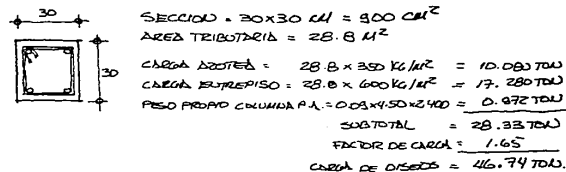 30
30
SECCION = 30x30 CM = 900 CM²
AREA TRIBUTARIA = 28.8 M²
CARGA AZOTEA = 28.8 x 350 KG/M² = 10.080 TON
CARGA ENTREPISO = 28.8 x 600 KG/M² = 17.280 TON
PESO PROPIO COLUMNA P.A. = 0.09x4.50x2400 = 0.972 TON
SUBTOTAL = 28.33 TON
FACTOR DE CARGA = 1.65
CARGA DE DISEÑO = 46.74 TON.